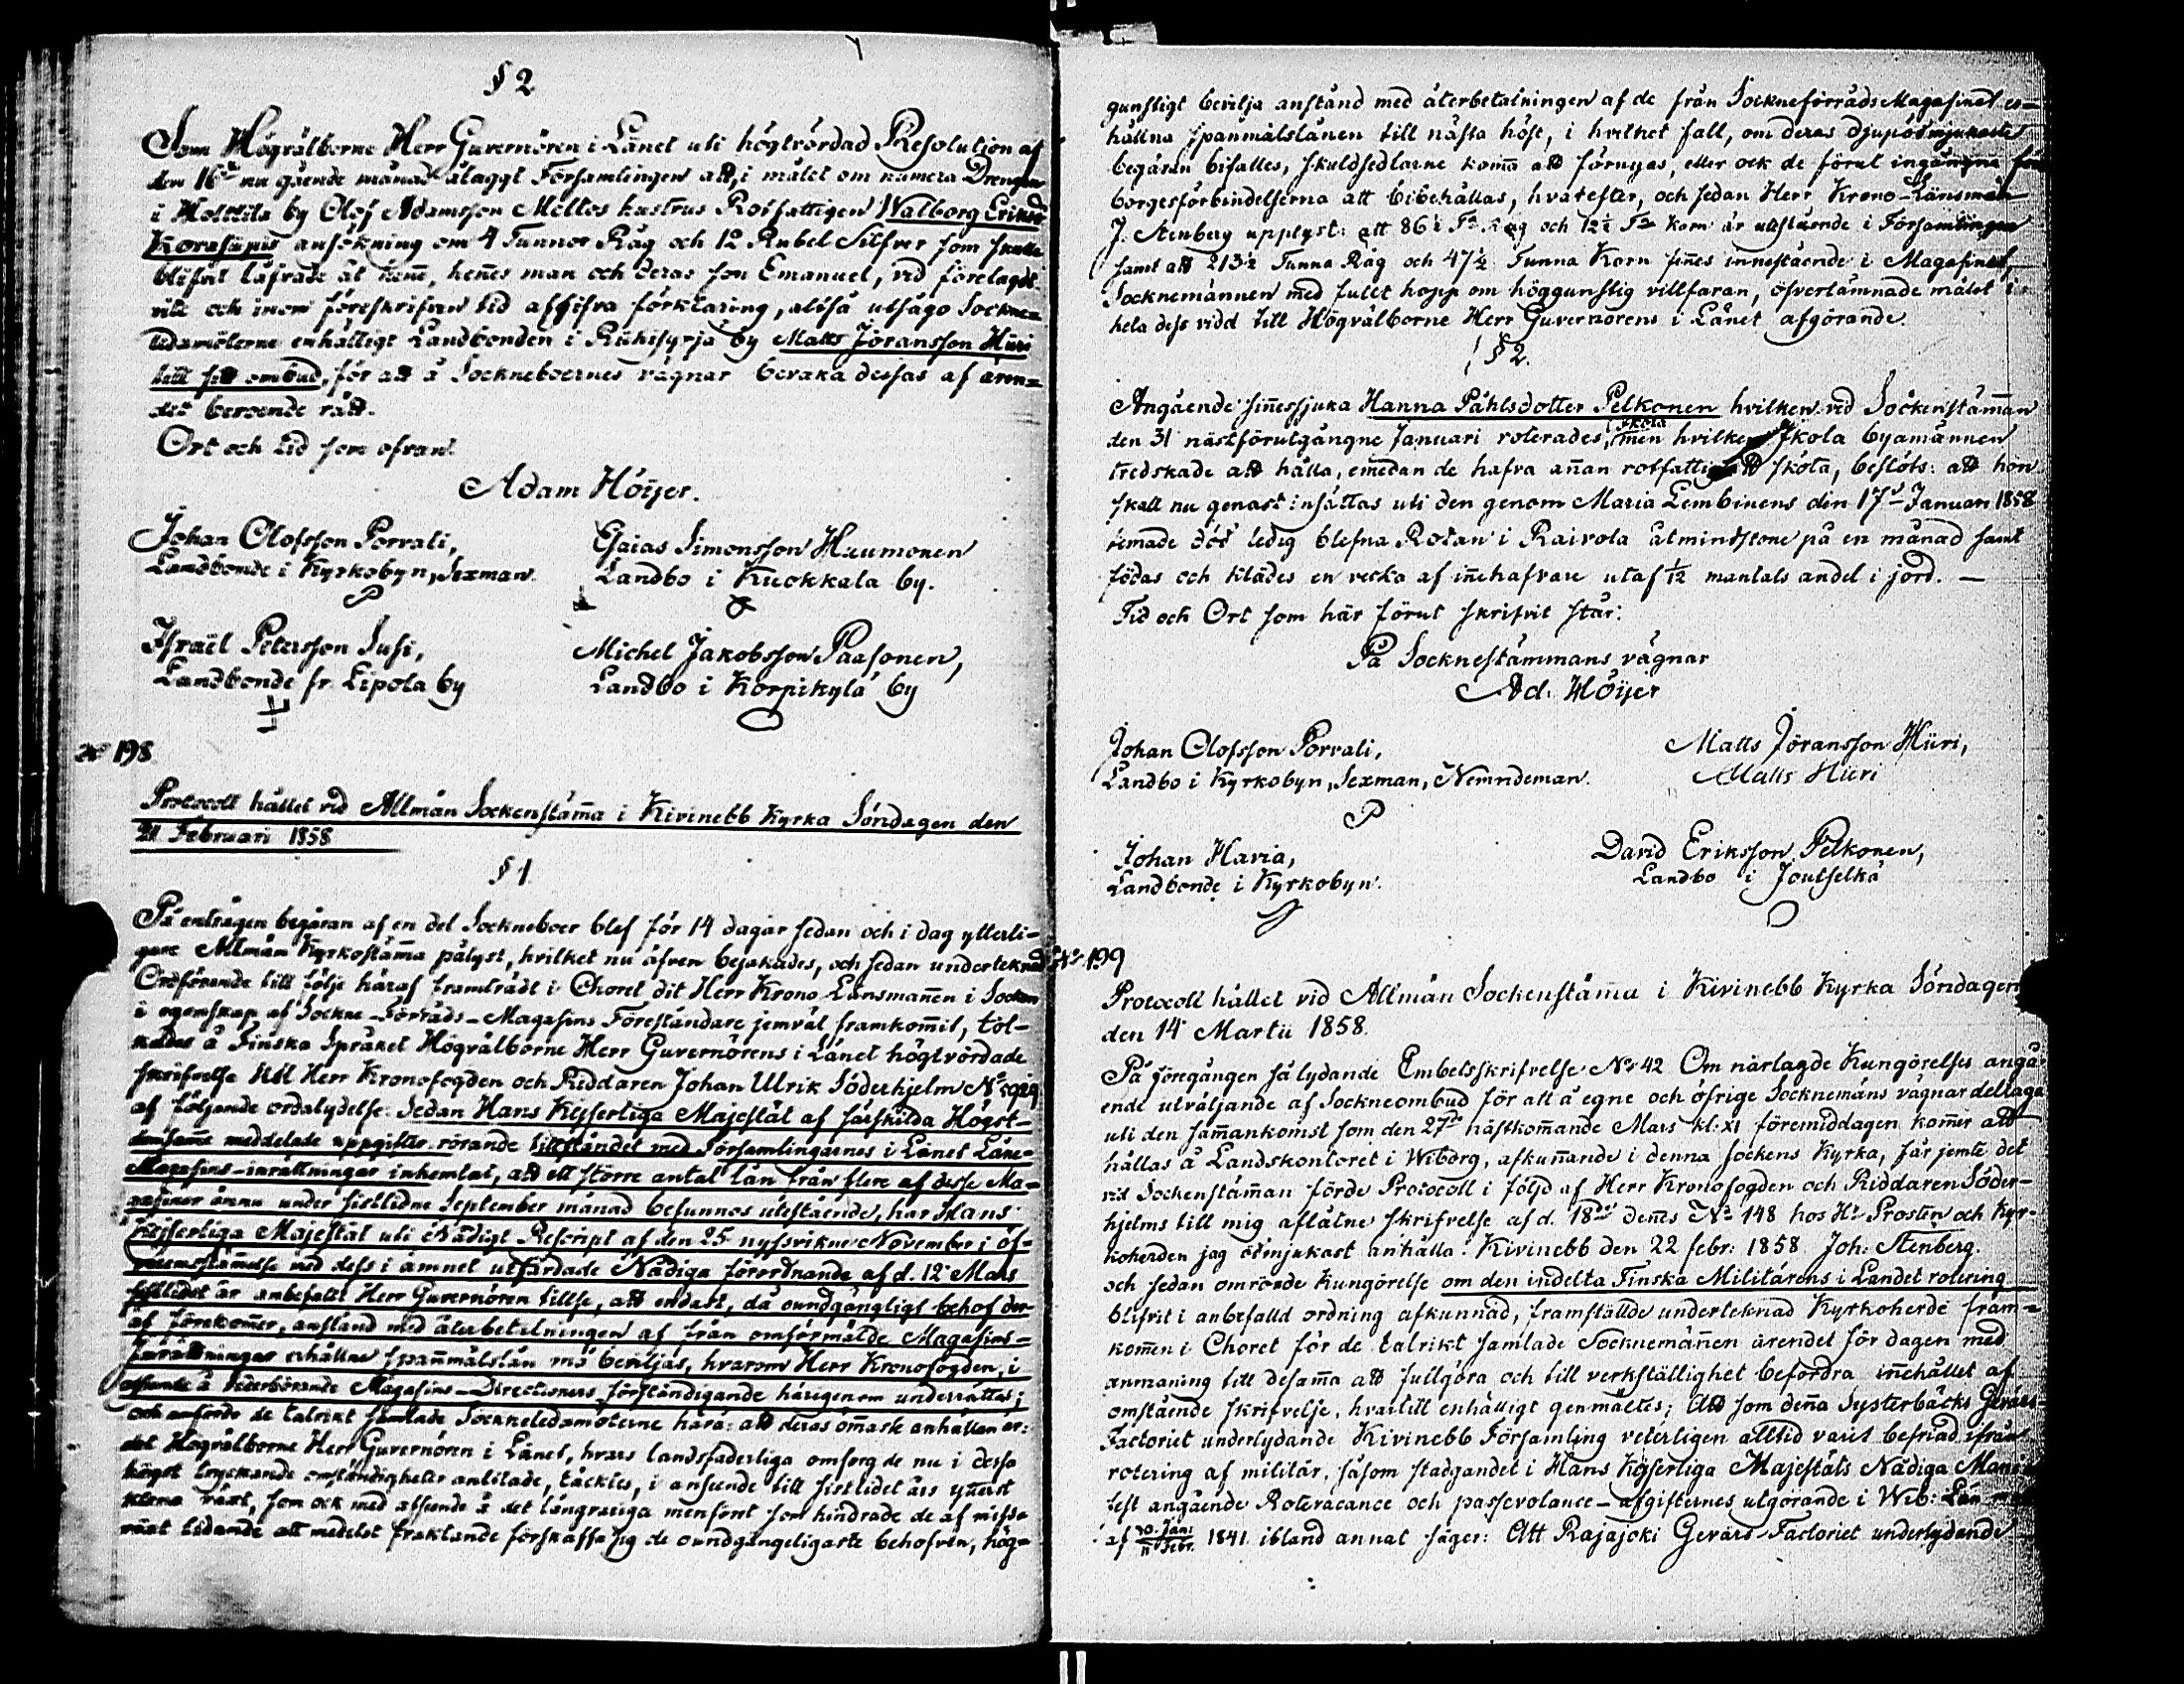 § 2
Som Högvälborne Herr Guvernören i Länet uti högtvördad Resolution af
den 16de nu gående månad ålaggt Församlingen att, i målet om numera Drengen
i Holttila by Olof Adamsson Mellos hustrus Rotfattigen Walborg Eriksd.
Korpsäpis ansökning om 4 Tunnor Råg och 12 Rubel Silfver som skulle
blifvit låfvade åt henne, hennes man och deras son Emanuel, vid förelagdt
vite och inom föreskrifven tid afgifva förklaring, altså utsågo Sockne-
ledamöterne enhälligt Landbonden i Riihisyrjä by Matts Jöransson Hiiri
till sitt ombud, för att å Sockneboernes vägnar bevaka dessas af ären-
det beroende rätt.
Ort och tid som ofvan.
Adam Höijer.
Johan Olofsson Porvali,
Landbonde i Kyrkobyn, Sexman.
Esaias Simonsson Huumonen
Landbo i Kuokkala by.
Israël Petersson Susi,
Landbonde fr. Lipola by
Michel Jakobsson Paasonen,
Landbo i Korpikylä by
No 198
Protocoll hållet vid Allmän Sockenstäm̄a i Kivinebb Kyrka Söndagen den
21 Februari 1858
§ 1
På enträgen begäran af en del Sockneboer blef för 14 dagar sedan och i dag ytterli-
gare Allmän Kyrkostäm̄a pålyst, hvilket nu äfven bejakades, och sedan undertecknad
Ordförande till följe häraf framträdt i Choret dit Herr Krono Länsman̄en i Socken
i egenskap af Sockne-Förråds-Magasins Föreståndare jemväl framkom̄it, tol-
kades å Finska Språket Högvälborne Herr Guvernörens i Länet högtvördade
skrifvelse till Herr Kronofogden och Riddaren Johan Ulrik Söderhjelm No 5929
af följande ordalydelse: Sedan Hans Kejserliga Majestät af särskilda Högst-
densam̄e meddelade uppgifter rörande tillståndet med Församlingarnes i Länet Låne-
Magasins-inrättningar inhemtat, att ett större antal lån från flere af desse Ma-
gasiner ännu under sistlidne September månad befunnos utestående, har Hans
Kejserliga Majestät uti Nådigt Rescript af den 25 nyssvikne November i öf-
verensstäm̄else med dess i ämnet utfärdade Nådiga förordnande af d. 12 Mars
sistlidet år anbefallt Herr Guvernören tillse, att endast, då oundgängligt behof der-
af förekom̄er, anstånd med återbetalningen af från omförmälde Magasins-
inrättningar erhållne span̄målslån må beviljas, hvarom Herr Kronofogden, i
afseende å vederbörande Magasins-Directioners förständigande härigenom underrättas;
och anförde de talrikt samlade Sockneledamöterne härå: att deras öm̄aste anhållan är:
det Högvälborne Herr Guvernören i Länet, hvars landsfaderliga omsorg de nu i dessa
högst tryckande omständigheter anlitade, täcktes, i anseende till sistlidet års ynkest
klena växt, som ock med afseende å det långvariga menföret som hindrade de af missa
växt lidande att medelst fraktande förskaffa sig de oundgängeligaste behofven, hög-
gunstigt bevilja anstånd med återbetalningen af de från Sockneförråds Magasinet er-
hållna spanmålslånen till nästa höst, i hvilket fall, om deras djupödmjukaste
begäran bifalles, skuldsedlarne kom̄a att förnyas, eller ock de förut ingångna för
borgesförbindelserna att bibehållas, hvarefter, och sedan Herr Krono-Länsman
J. Stenberg upplyst: att 86½ Tr Råg och 12½ Tr Korn är utestående i Församlingen
samt att 213½ Tunna Råg och 47½ Tunna Korn fin̄es innestående i Magasinet,
Socknemännen med fullt hopp om höggunstig villfaran, öfverlämnade målet i
hela dess vidd till Högvälborne Herr Guvernörens i Länet afgörande.
§ 2.
Angående sin̄essjuka Hanna Påhlsdotter Pelkonen hvilken vid Sockenstäm̄an
den 31 nästförutgångne Januari roterades, men hvilken Ikola byamännen
tredskade att hålla, emedan de hafva an̄an rotfattig att sköta, beslöts: att hon
skall nu genast insättas uti den genom Maria Lembinens den 17de Januari 1858
timade död ledig blefna Rotan i Raivola åtminstone på en månad samt
födas och klädes en vecka af in̄ehafvare utaf 1/12 mantals andel i jord. —
Tid och Ort som här förut skrifvit står:
På Socknestämmans vägnar
Ad. Höijer
Johan Olofsson Porvali,
Landbo i Kyrkobyn, Sexman, Nemndeman.
Matts Jöransson Hiiri,
Matts Hiiri
Johan Havia,
Landbonde i Kyrkobyn.
David Eriksson Pelkonen,
Landbo i Joutselkä
No 199
Protocoll hållet vid Allmän Sockenstäm̄a i Kivinebb Kyrka Söndagen
den 14 Martii 1858.
På föregången så lydande Embetsskrifvelse No 42 Om närlagde Kungörelses angå-
ende utväljande af Sockneombud för att å egne och öfrige Socknemäns vägnar deltaga
uti den sam̄ankomst som den 27de nästkom̄ande Mars kl: XI föremiddagen kom̄er att
hållas å Landskontoret i Wiborg, afkun̄ande i denna sockens Kyrka, får jemte det
vid Sockenstäm̄an förde Protocoll i följd af Herr Kronofogden och Riddaren Söder-
hjelms till mig aflåtne skrifvelse af d. 18de dennes No 148 hos Hr Prosten och Kyr-
koherden jag ödmjukast anhålla. Kivinebb den 22 febr: 1858. Joh: Stenberg.
och sedan omrörde Kungörelse om den indelta Finska Militärens i Landet rotering
blifvit i anbefalld ordning afkunnad, framställde undertecknad Kyrkoherde fram-
kom̄en i Choret för de talrikt samlade Socknemän̄en ärendet för dagen med
anmaning till desam̄a att fullgöra och till verkställighet befordra in̄ehållet af
omstående skrifvelse, hvartill enhälligt genmältes; Att som den̄a Systerbäcks Gevärs-
Factoriet underlydande Kivinebb Församling veterligen alltid varit befriad ifrån
rotering af militär, såsom stadgandet i Hans Kejserliga Majestäts Nådiga Mani-
fest angående Rotevacance och passevolance-afgifternes utgörande i Wib: Län
af 30 Jan:/11 Febr. 1841 ibland annat säger: Att Rajajoki Gevärs-Factoriet underlydande